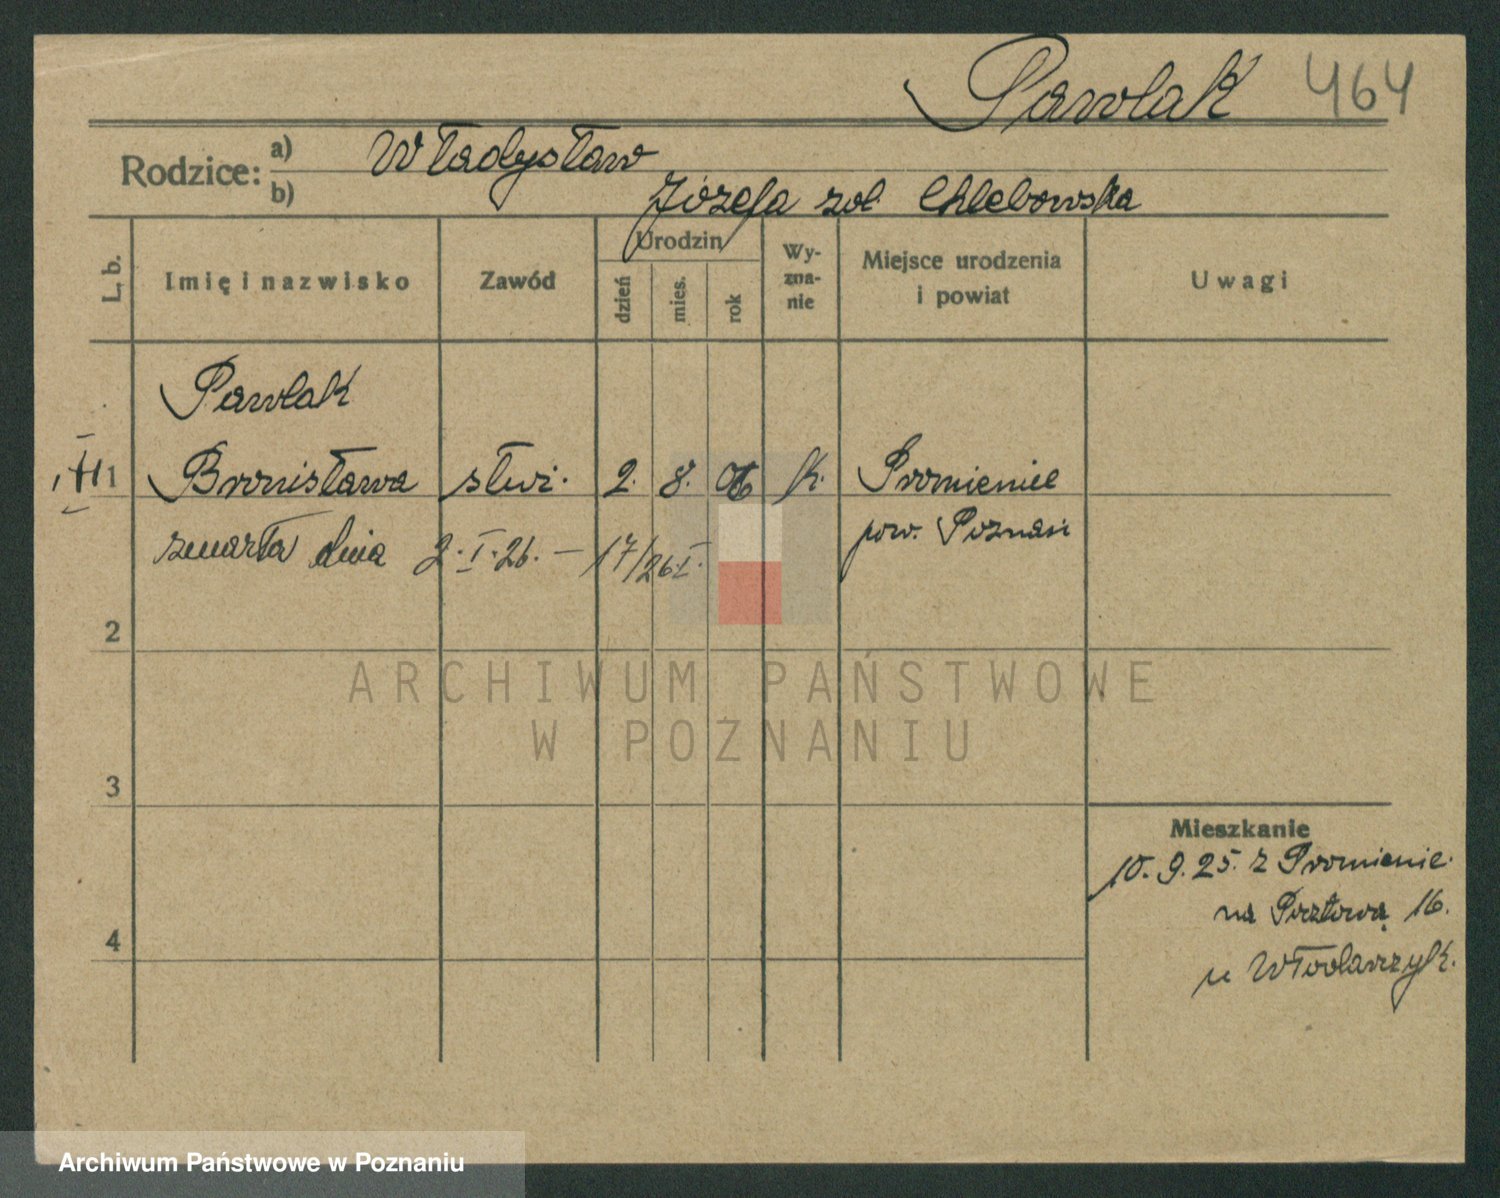 Pawlak 464
Rodzice: a) Władysław
b) Józefa zol. Chlebowska
L. b.
Imię i nazwisko
Zawód
Urodzin
dzień
mies.
rok
Wy-
zna-
nie
Miejsce urodzenia
i powiat
Uwagi
Pawlak
1 Bronisława służ. 2. 8. 06 k. Promienice
pow. Poznań
zmarła dnia 2. I. 26. – 17/26. I.
2
3
4
Mieszkanie
10. 9. 25. z Promienic.
na Pocztową 16.
u Włodarczyk.
ARCHIWUM PAŃSTWOWE
W POZNANIU
Archiwum Państwowe w Poznaniu